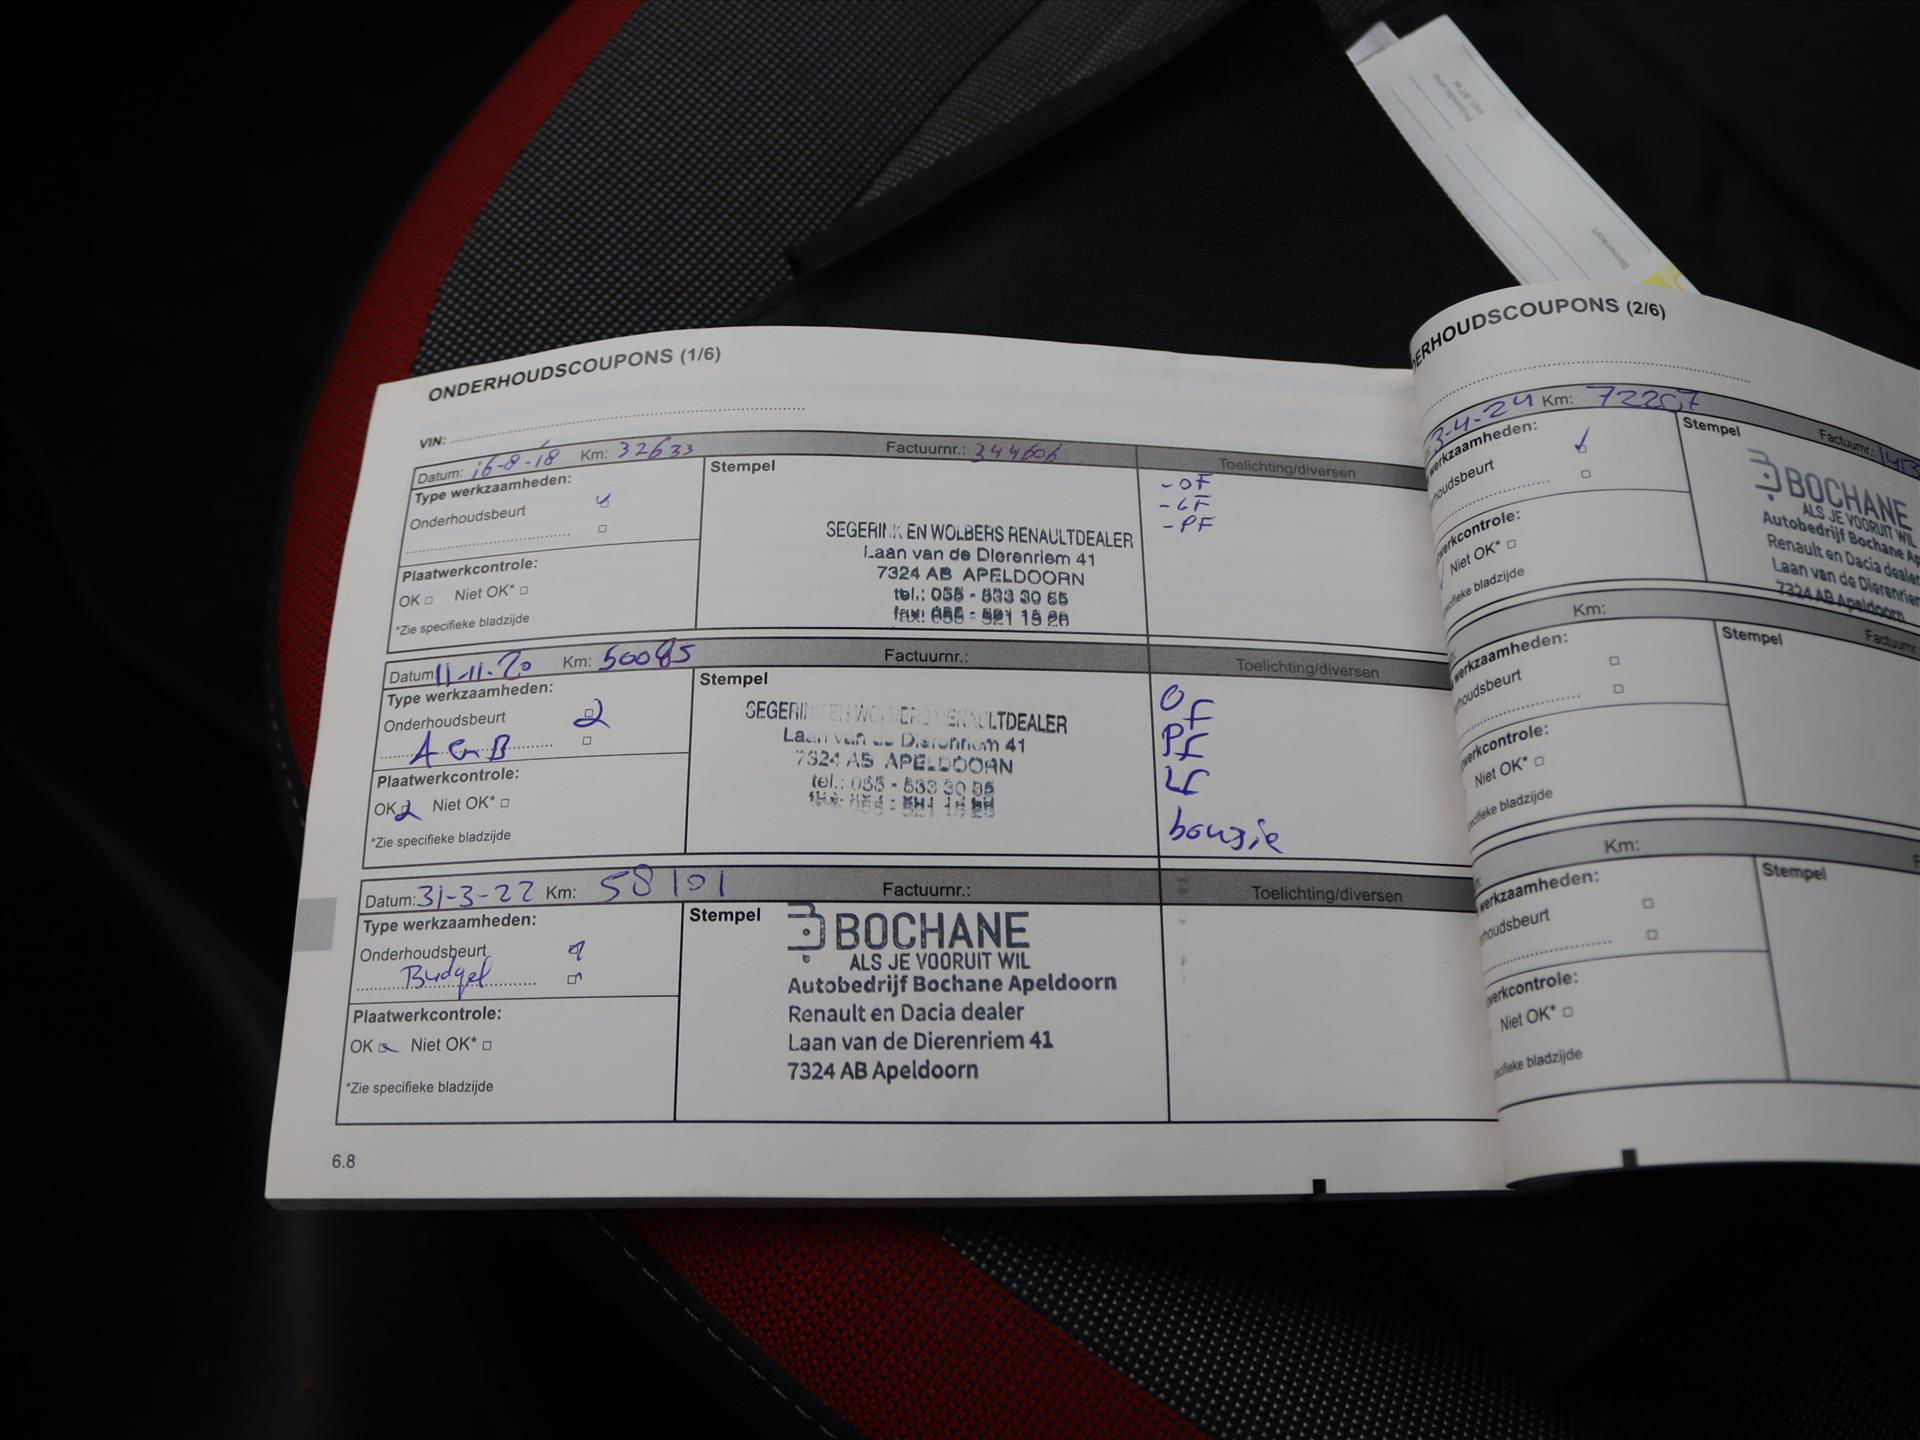 ONDERHOUDSCOUPONS (1/6)
VIN:
Datum: 16-8-18 Km: 32633 Factuurnr.: 344606 Toelichting/diversen
Type werkzaamheden:
Onderhoudsbeurt
Plaatwerkcontrole:
OK Niet OK*
*Zie specifieke bladzijde
Stempel
SEGERINK EN WOLBERS RENAULTDEALER
Laan van de Dierenriem 41
7324 AB APELDOORN
tel.: 055 - 533 30 65
fax: 055 - 521 15 26
-OF
-LF
-PF
Datum 11-11-20 Km: 50085 Factuurnr.: Toelichting/diversen
Type werkzaamheden:
Onderhoudsbeurt
A en B
Plaatwerkcontrole:
OK Niet OK*
*Zie specifieke bladzijde
Stempel
SEGERIN EN WOLBERS RENAULTDEALER
Laan van de Dierenriem 41
7324 AB APELDOORN
tel.: 055 - 533 30
OF
PF
LF
bougie
Datum: 31-3-22 Km: 58101 Factuurnr.: Toelichting/diversen
Type werkzaamheden:
Onderhoudsbeurt
Budget
Plaatwerkcontrole:
OK Niet OK*
*Zie specifieke bladzijde
Stempel
BOCHANE
ALS JE VOORUIT WIL
Autobedrijf Bochane Apeldoorn
Renault en Dacia dealer
Laan van de Dierenriem 41
7324 AB Apeldoorn
6.8
DERHOUDSCOUPONS (2/6)
3-4-24 Km: 72207 Factuurnr.:
werkzaamheden:
houdsbeurt
werkcontrole:
Niet OK*
specifieke bladzijde
Stempel
BOCHANE
ALS JE VOORUIT WIL
Autobedrijf Bochane Ap
Renault en Dacia dealer
Laan van de Dierenrie
7324 AB Apeldoorn
Km: Factuurnr.
werkzaamheden:
houdsbeurt
werkcontrole:
Niet OK*
specifieke bladzijde
Stempel
Km:
werkzaamheden:
houdsbeurt
werkcontrole:
Niet OK*
specifieke bladzijde
Stempel
incl. BTW
Binnenkort